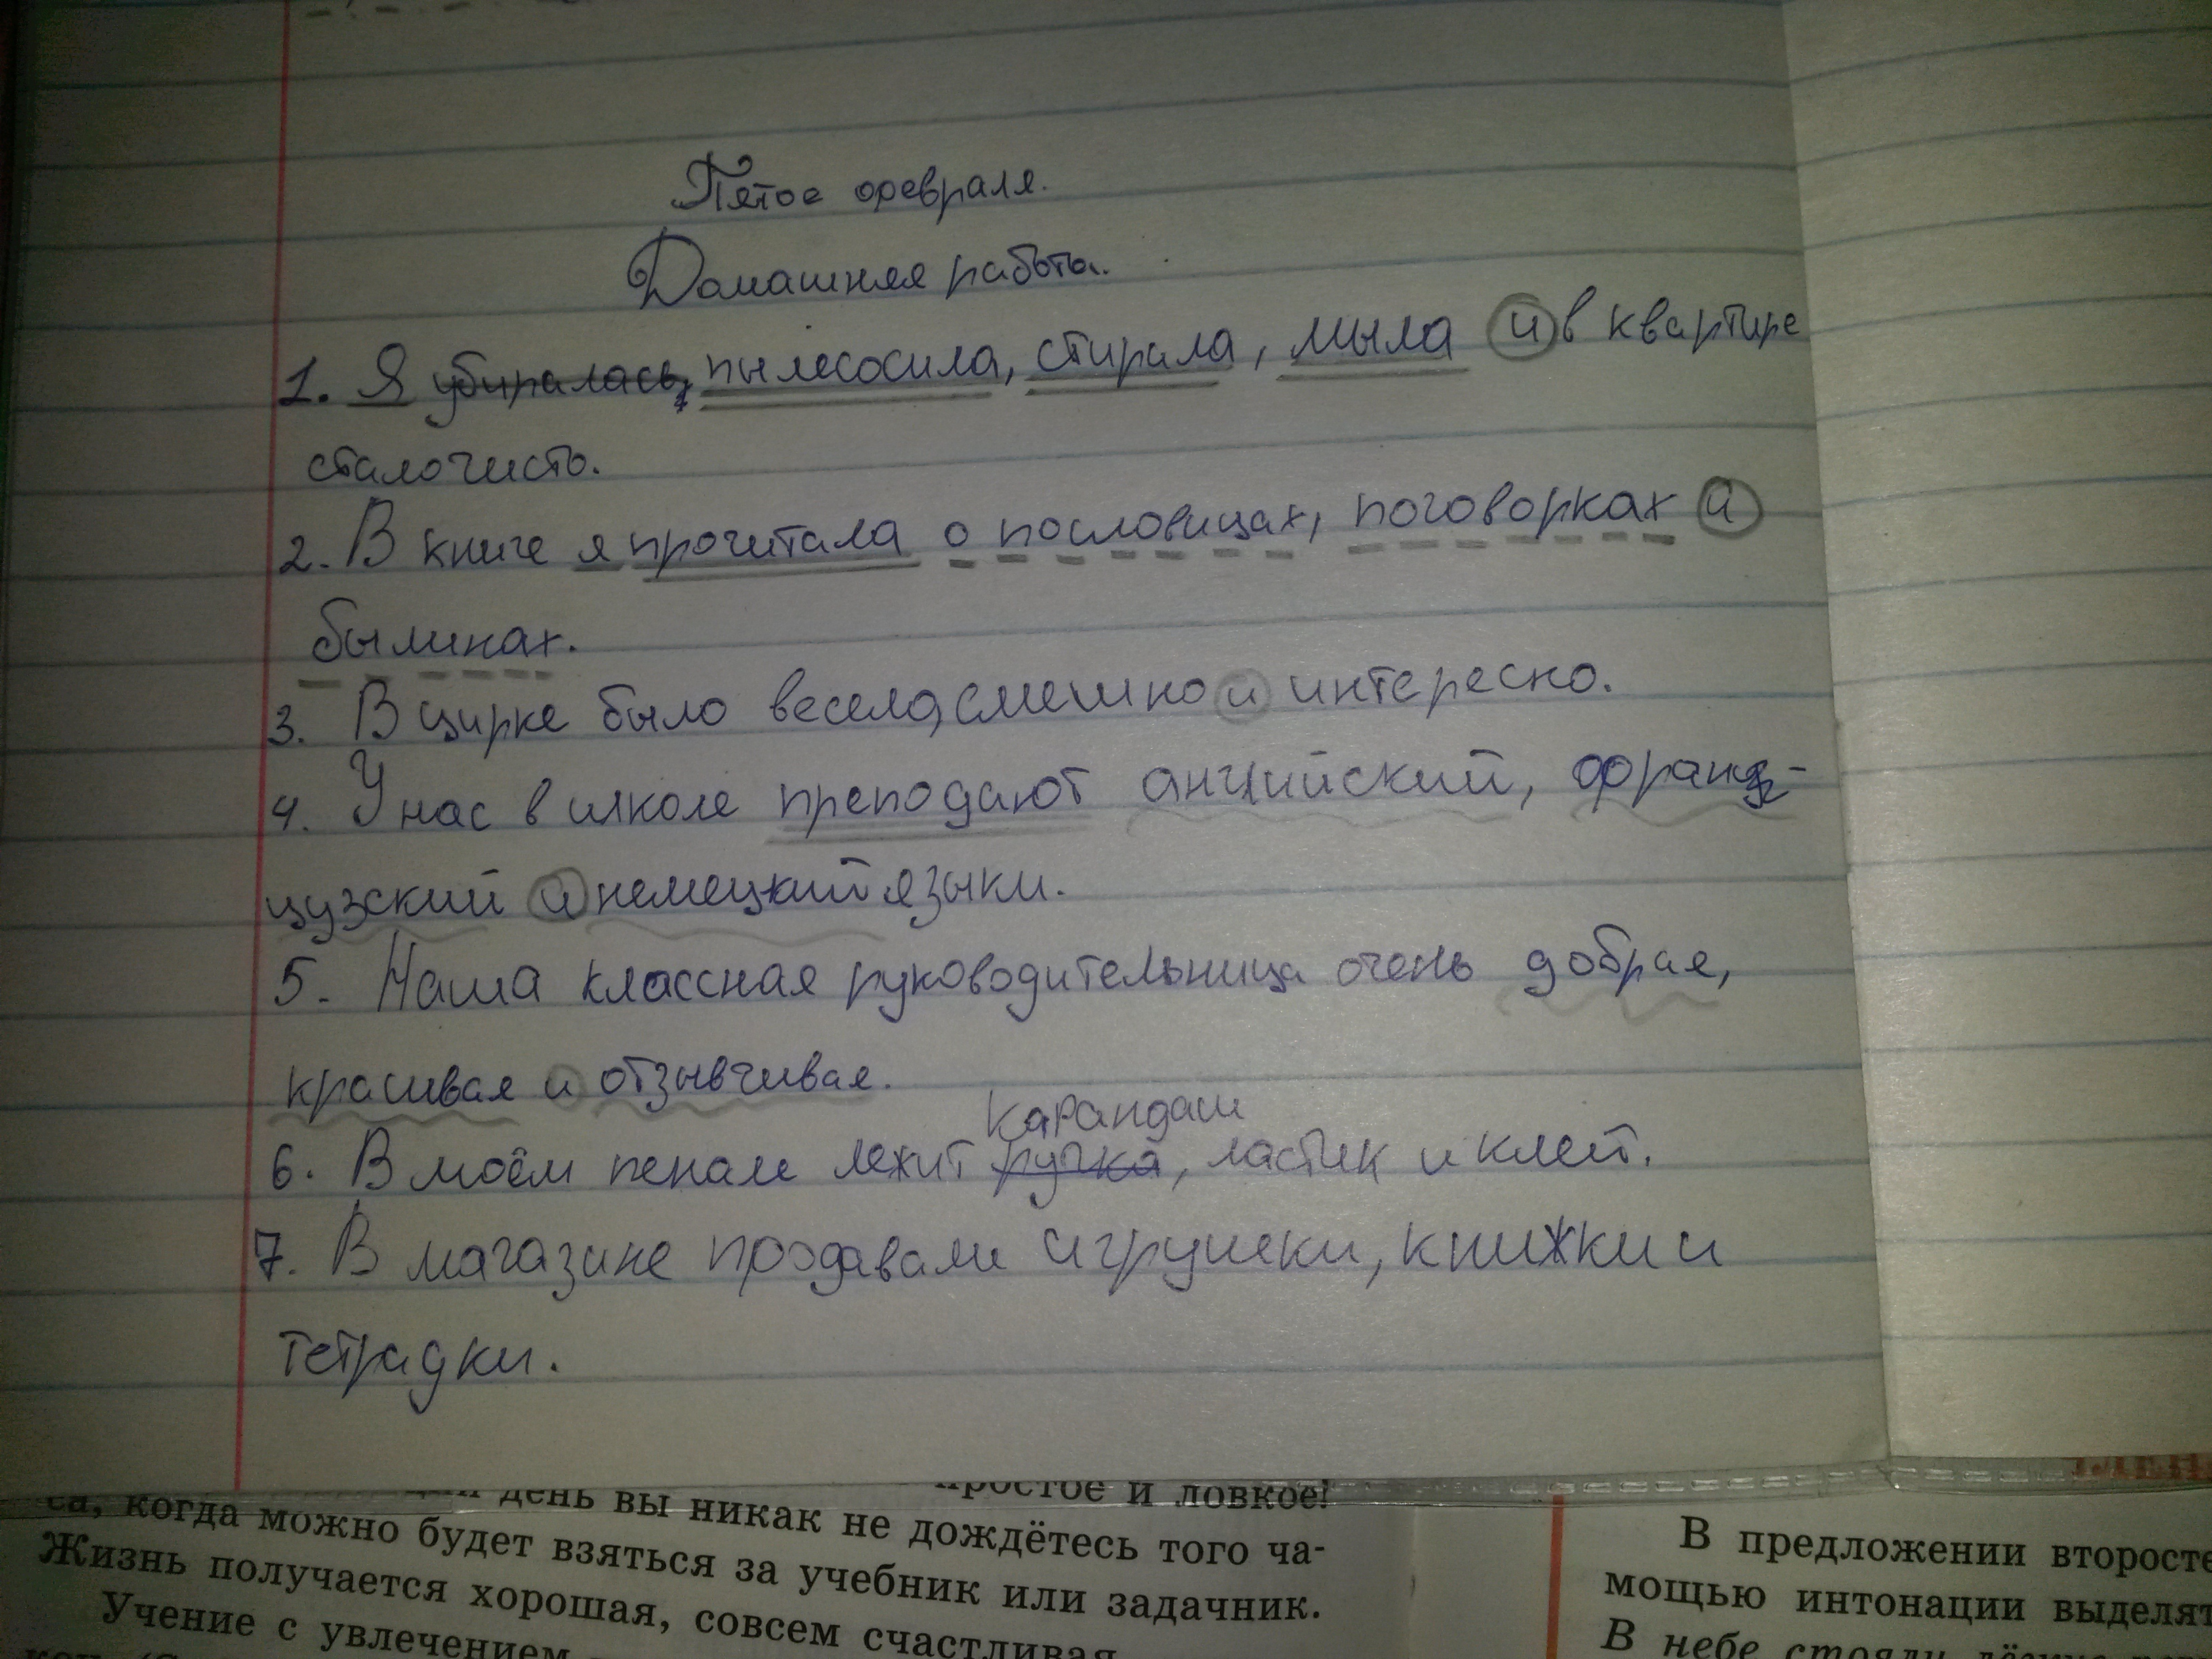 Пятое февраля.
Домашняя работа.
1. Я убиралась, пылесосила, стирала, мыла и в квартире
стало чисто.
2. В книге я прочитала о пословицах, поговорках и
былинах.
3. В цирке было весело, смешно и интересно.
4. У нас в школе преподают английский, францу-
цузский и немецкий языки.
5. Наша классная руководительница очень добрая,
красивая и отзывчивая.
карандаш
6. В моём пенале лежит ручка, ластик и клей.
7. В магазине продавали игрушки, книжки и
тетрадки.
день вы никак не дождётесь того ча-
простое и ловкое!
са, когда можно будет взяться за учебник или задачник.
Жизнь получается хорошая, совсем счастливая
Учение с увлечением
В предложении второсте
мощью интонации выделят
В небе стояли